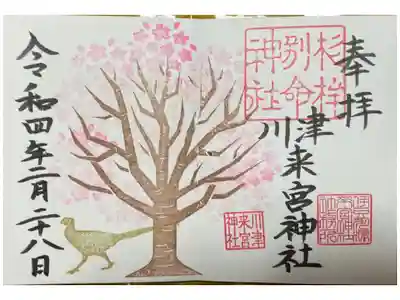 奉拝
杉桙
別命
神社
川津来宮神社
川津
来宮
神社
令和四年二月二十八日